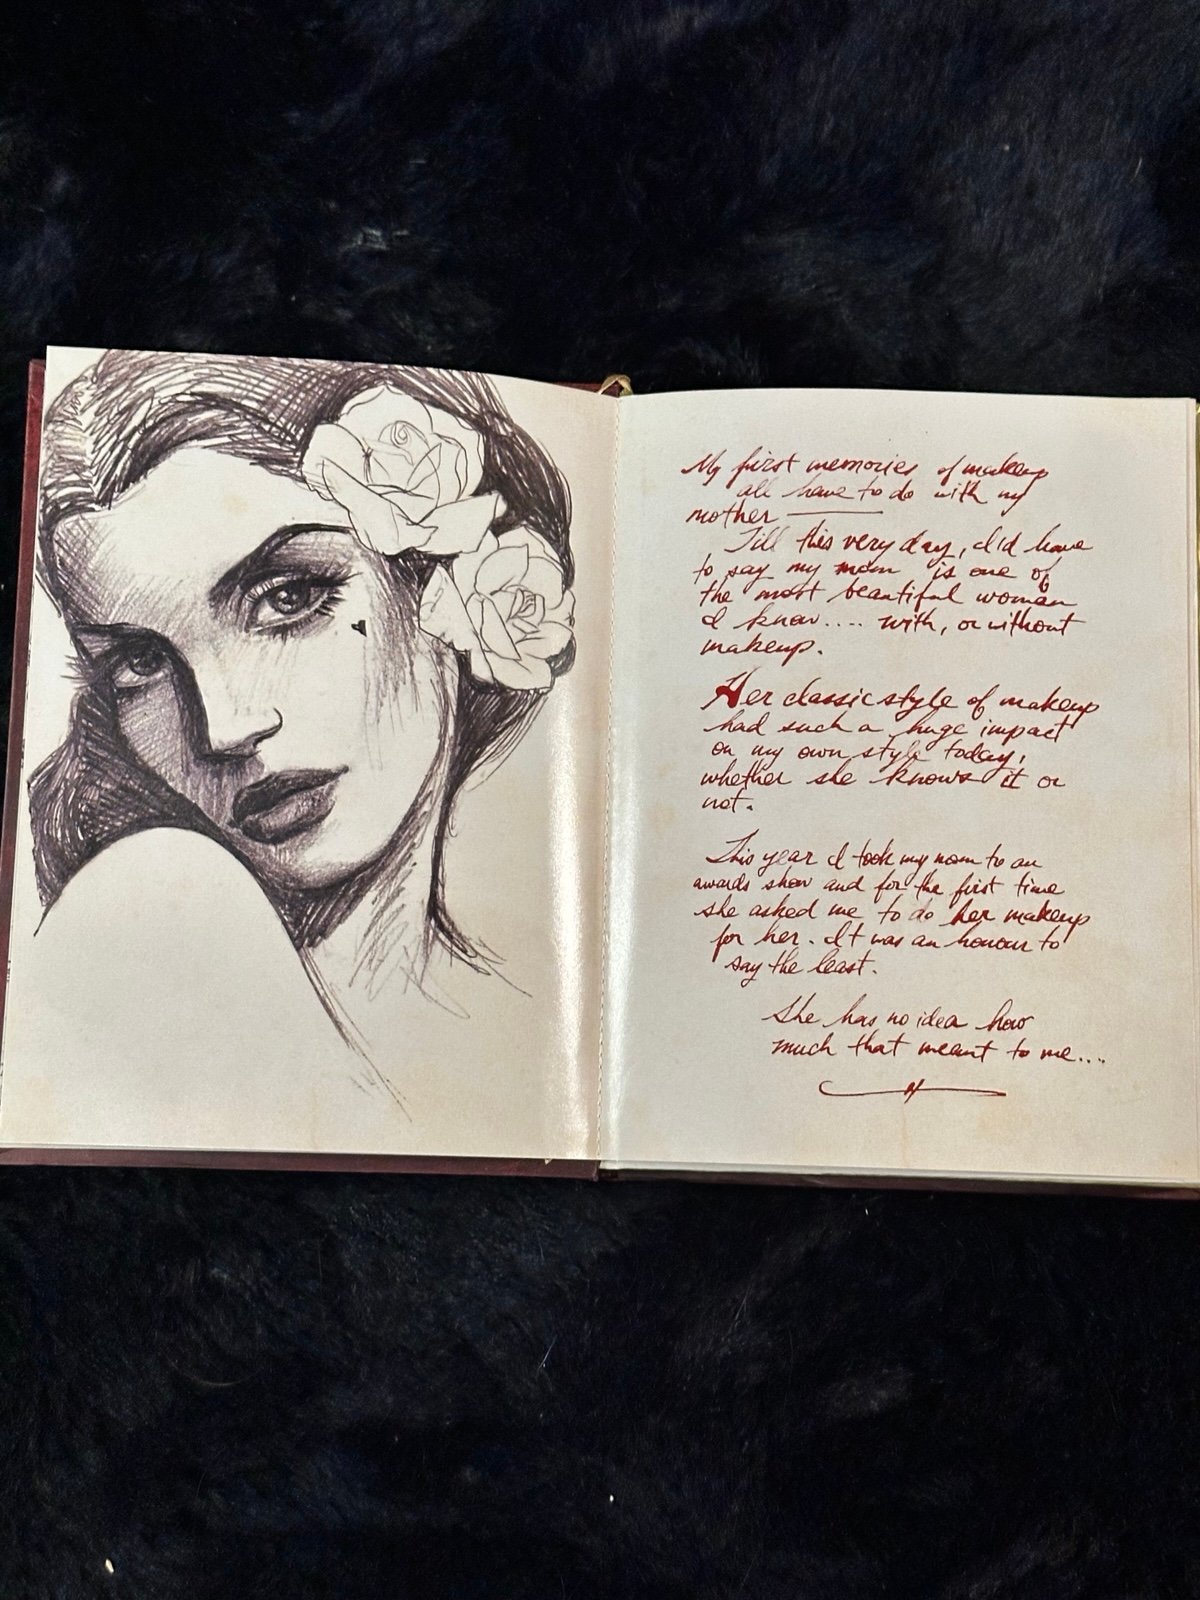 My first memories of makeup
all have to do with my
mother
Till this very day, I'd have
to say my mom is one of
the most beautiful woman
I know.... with, or without
makeup.
Her classic style of makeup
had such a huge impact
on my own style today,
whether she knows it or
not.
This year I took my mom to an
awards show and for the first time
she asked me to do her makeup
for her. It was an honour to
say the least.
She has no idea how
much that meant to me...